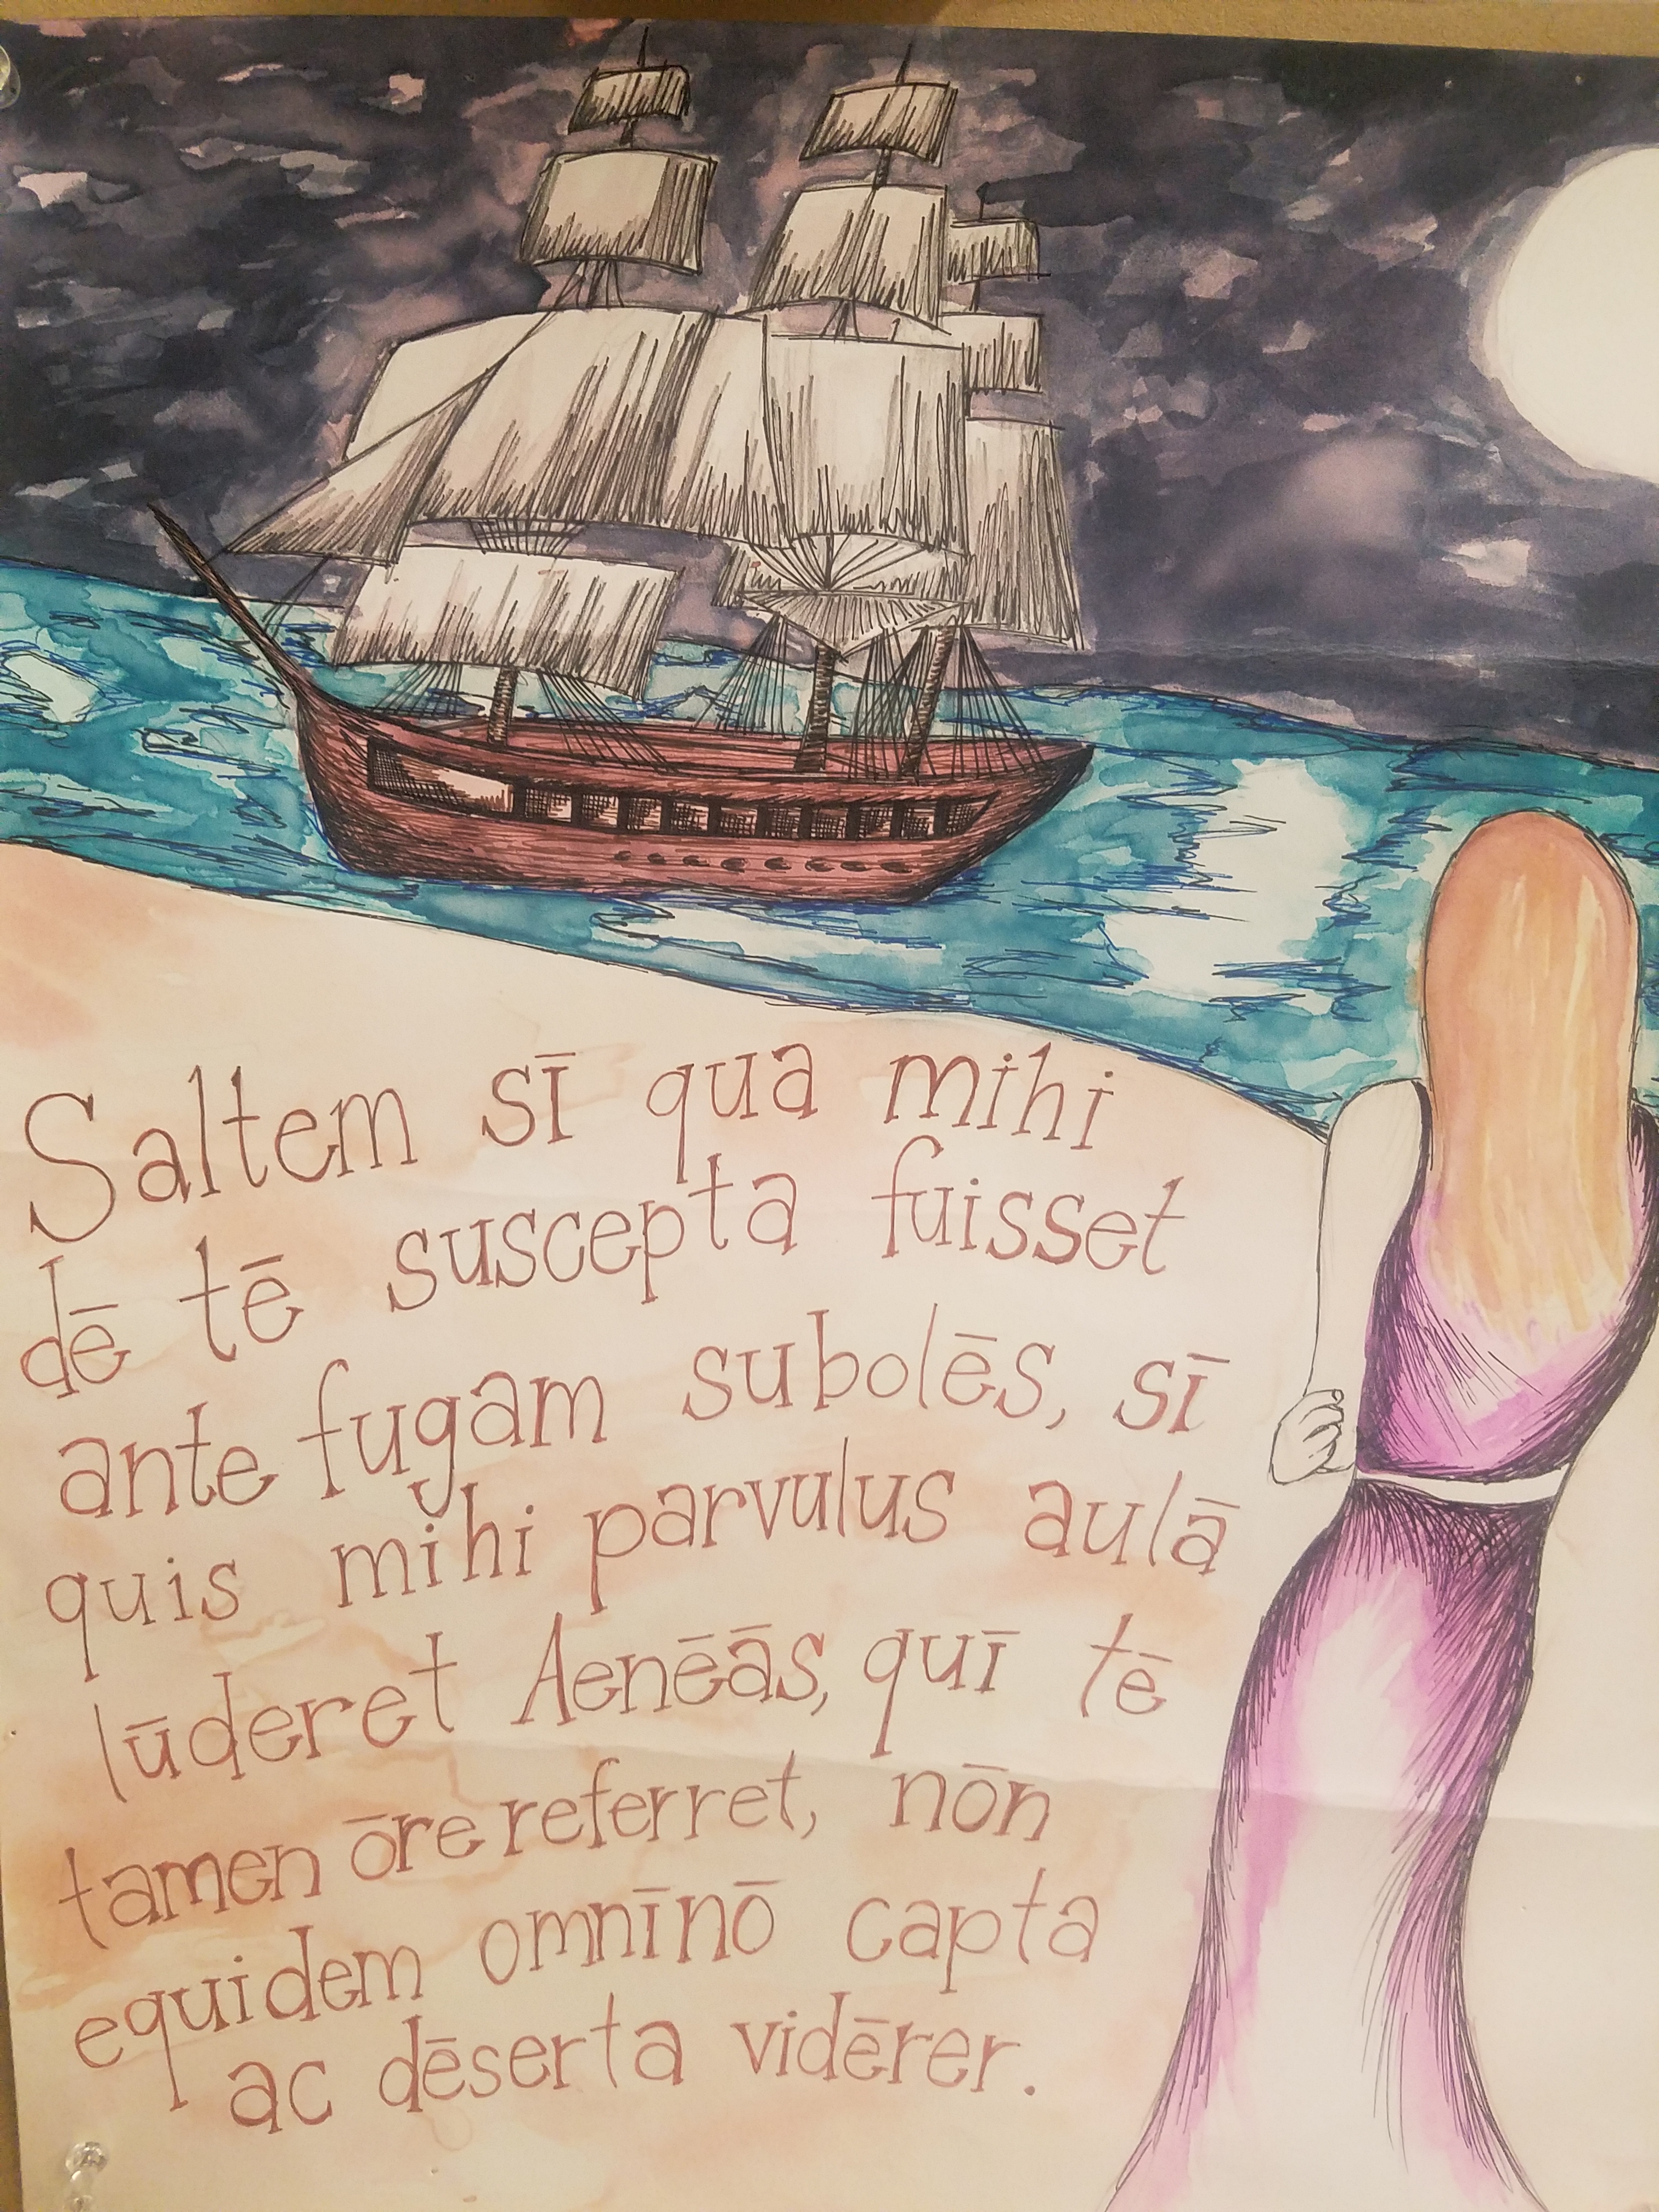 Saltem sī qua mihi
dē tē suscepta fuisset
ante fugam subolēs, sī
quis mihi parvulus aulā
lūderet Aenēās, quī tē
tamen ōre referret, nōn
equidem omnīnō capta
ac dēserta vidērer.